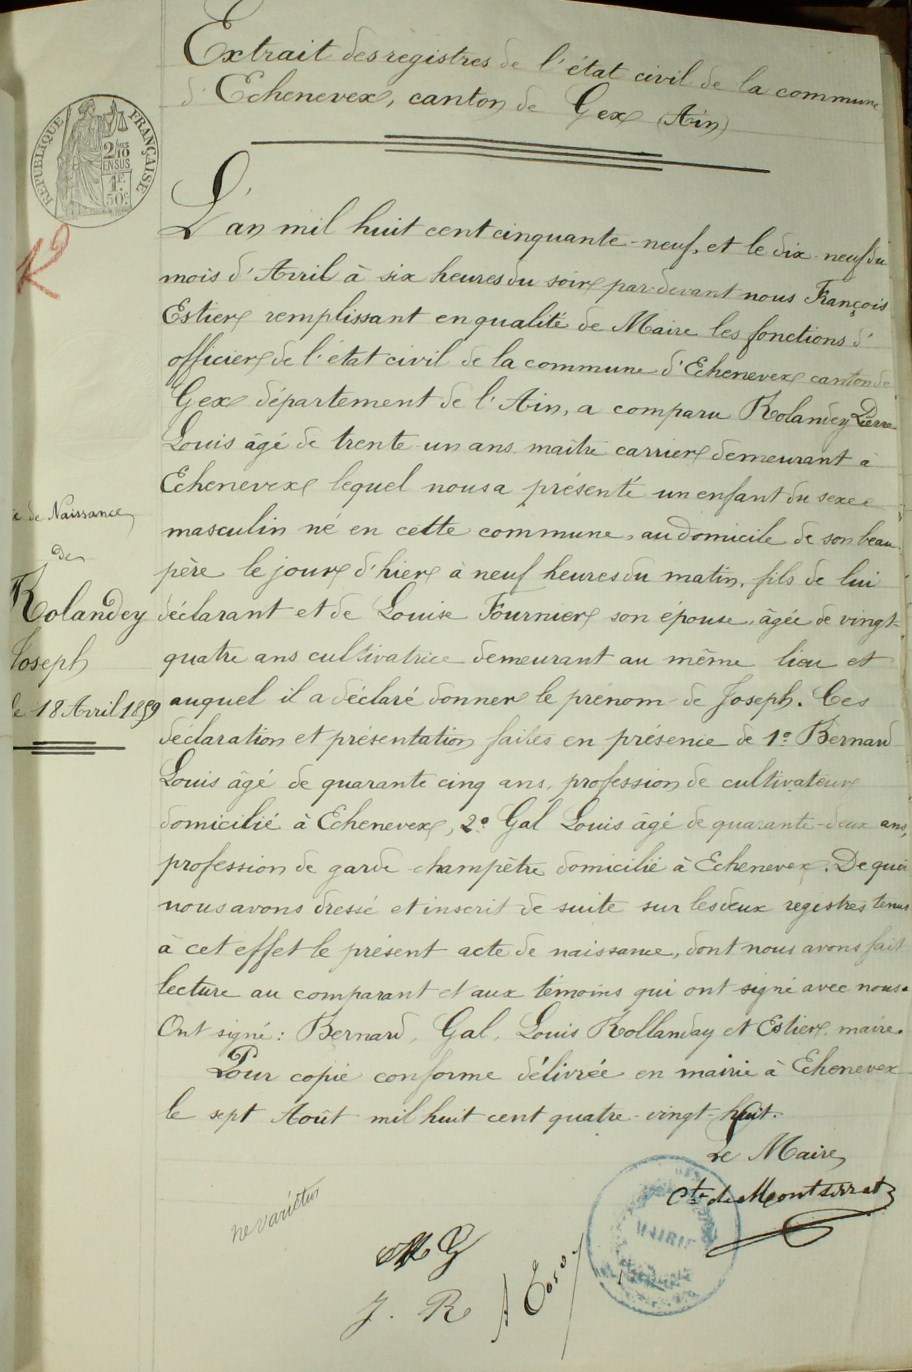 Extrait des registres de l'état civil de la commune
d'Echenevex, canton de Gex (Ain)
RÉPUBLIQUE FRANÇAISE
2/10
EN SUS
1F
50c
L'an mil huit cent cinquante-neuf, et le dix-neuf du
mois d'Avril à six heures du soir par-devant nous François
Estier remplissant en qualité de Maire les fonctions d'
officier de l'état civil de la commune d'Echenevex canton de
Gex département de l'Ain, a comparu Rolandey Pierre
Louis âgé de trente-un ans maître carrier demeurant à
Echenevex lequel nous a présenté un enfant du sexe
masculin né en cette commune, au domicile de son beau-
père le jour d'hier à neuf heures du matin, fils de lui
déclarant et de Louise Fournier son épouse, âgée de vingt-
quatre ans cultivatrice demeurant au même lieu et
auquel il a déclaré donner le prénom de Joseph. Ces
déclaration et présentation faites en présence de 1° Bernard
Louis âgé de quarante cinq ans, profession de cultivateur
domicilié à Echenevex, 2° Gal Louis âgé de quarante-deux ans,
profession de garde-champêtre domicilié à Echenevex. De quoi
nous avons dressé et inscrit de suite sur les deux registres tenus
à cet effet le présent acte de naissance, dont nous avons fait
lecture au comparant et aux témoins qui ont signé avec nous.
Ont signé: Bernard, Gal, Louis Rollanday et Estier maire.
Pour copie conforme délivrée en mairie à Echenevex
le sept Août mil huit cent quatre-vingt-huit.
Le Maire
Cte de Montserrat
MAIRIE
de Naissance
de
Rolandey
Joseph
le 18 Avril 1859
ne varietur
J. R